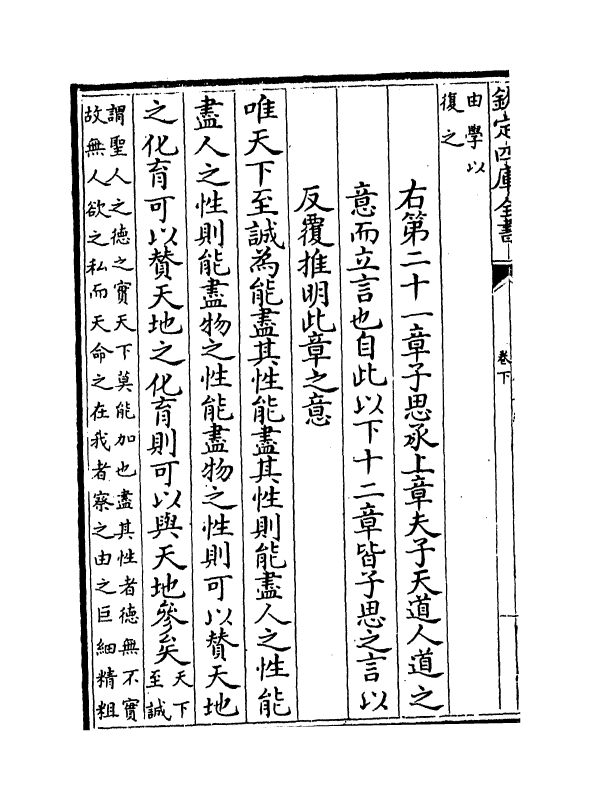 欽定四庫全書
卷下
由學以
復之
右第二十一章子思承上章夫子天道人道之
意而立言也自此以下十二章皆子思之言以
反覆推明此章之意
唯天下至誠為能盡其性能盡其性則能盡人之性能
盡人之性則能盡物之性能盡物之性則可以贊天地
之化育可以贊天地之化育則可以與天地參矣
天下
至誠
謂聖人之德之實天下莫能加也盡其性者德無不實
故無人欲之私而天命之在我者察之由之巨細精粗